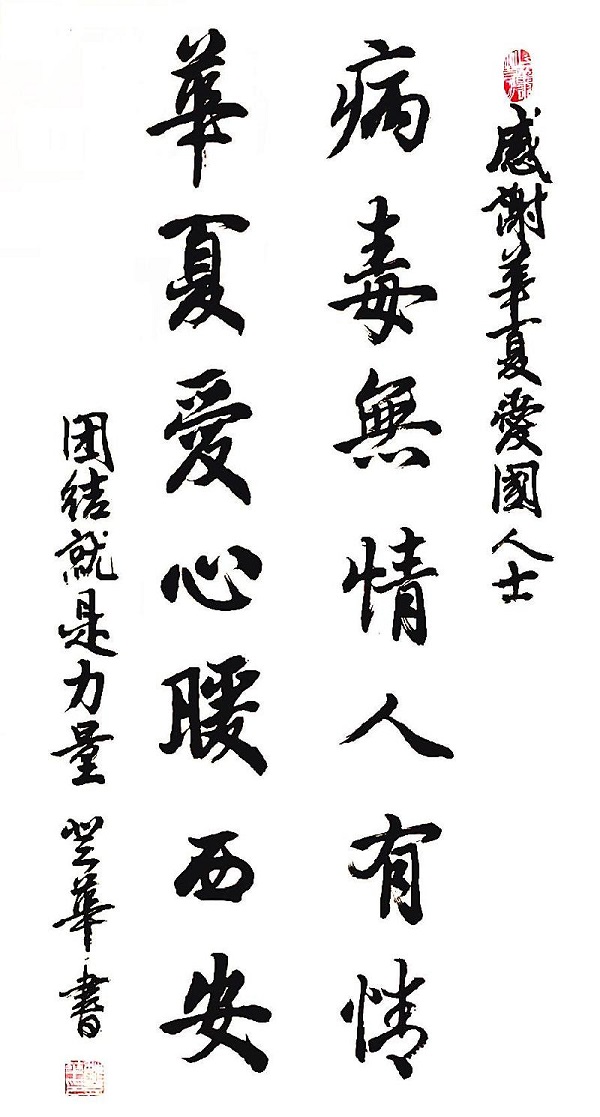 感謝華夏愛國人士
病毒無情人有情
華夏愛心暖西安
团结就是力量 華書